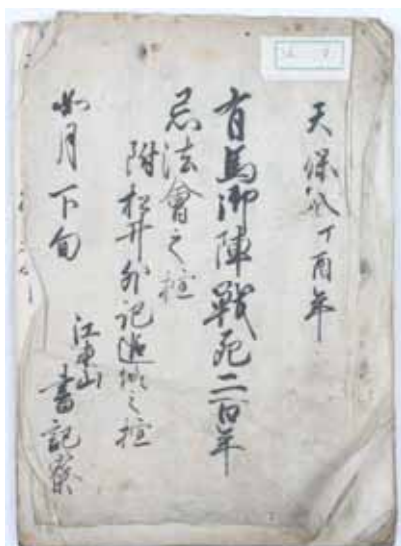 天保八丁酉年
有馬御陣戦死二百年
忌法會之控
附松井外記之控
如月下旬
江東山
書記寮